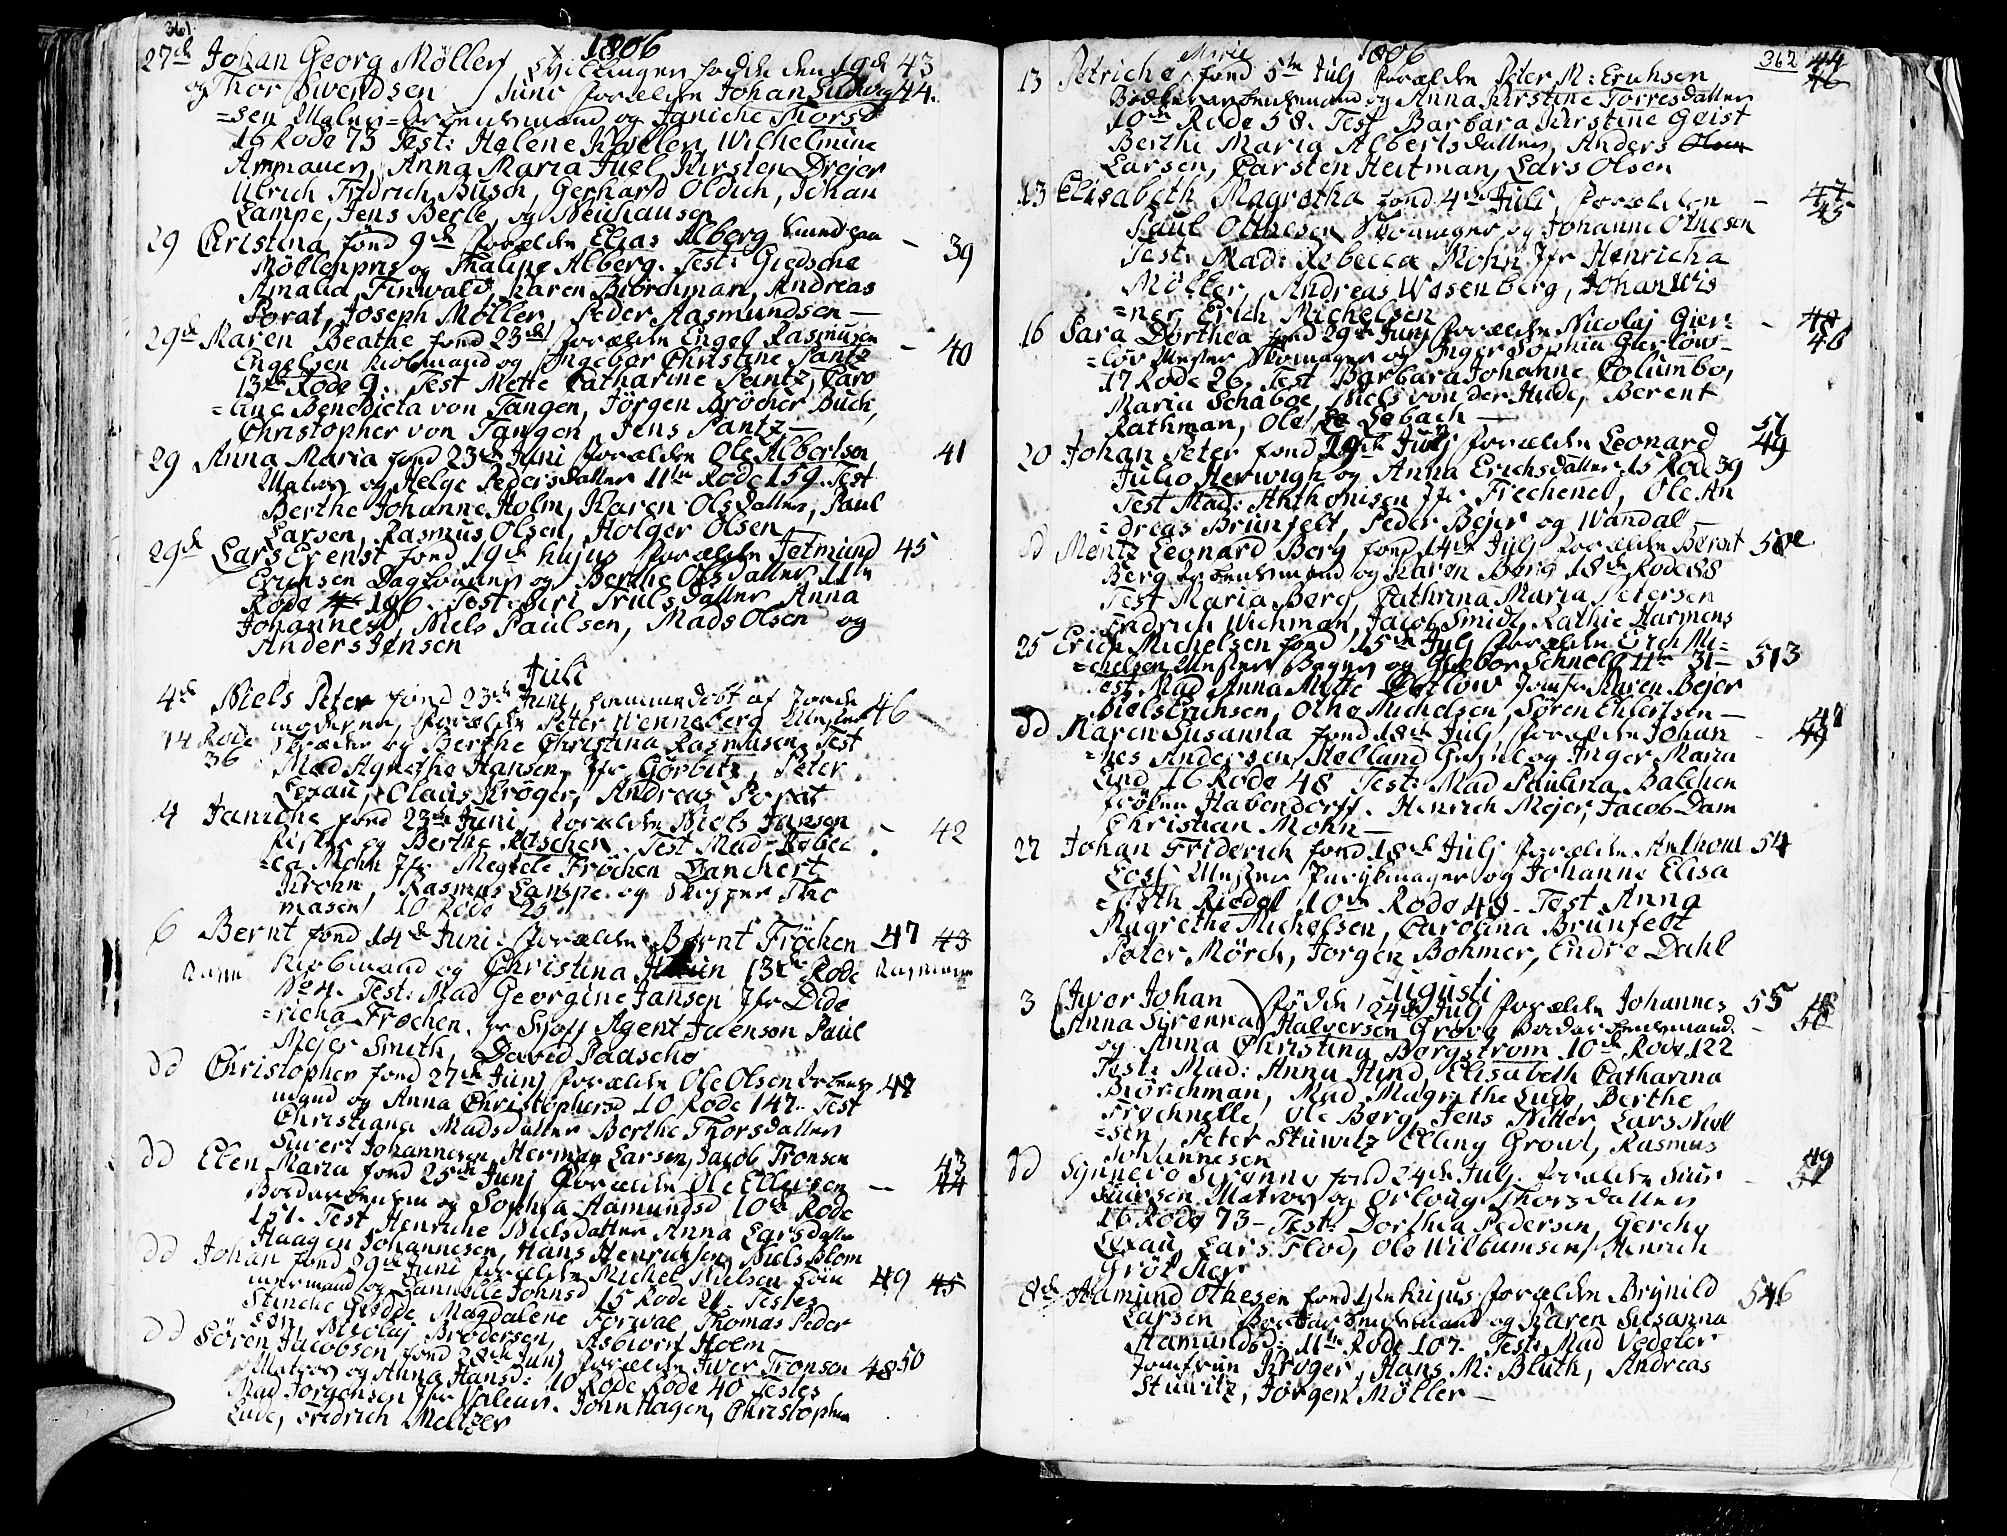 361
1806
27de Johan Georg Möller Tvillinger fødde den 19de 43
og Thor Swendsen Juni forældre Johan Ludwig 44.
=sen Maler= og Janiche Thorsd
16 Rode 73 Test: Helene Wilhelmine
Ammauer, Anna Maria Juel, Kirsten Drejer
Ulrich Fridrich Busch, Gerhard Oldich, Johan
Lampe, Jens Berle, og Neuhaus
29 Christina fönd 9de forældre Elias Alberg - 39
Möllenpris og Alberg. Test: Giedsche
Amalia Finwald, Karen Biörchman, Andreas
Porat, Joseph Möller, Peder Aasmundsen —
29de Maren Beathe fönd 23de forældre Engel Rasmusen - 40
Engelsen Kiöbmand og Ingebor Christine Pantz
13de Rode 9. Test Mette Catharine Pantz, Caro
=line Benedicta von Tangen, Jörgen Bröcher Buch,
Christopher von Tangen, Jens Pantz —
29 Anna Maria fönd 23de Juni forældre Ole Albertsen 41
Matros og Helge Pedersdatter 11te Rode 159. Test
Berthe Johanne Holm, Karen Olsdatter, Paul
Larsen, Rasmus Olsen, Holger Olsen
29de Lars Erenst fönd 19de hujus forældre Jetmund 45
Erichsen Dagløner og Berthe Olsdatter 11te
Rode 106. Test: Siri Trulsdatter Anna
Johannesd, Niels Paulsen, Mads Olsen og
Anders Jensen
Juli
4de Niels Peter fönd 23de Juni, hiemmedøbt af Jorde
moderen, forældre Peter Wenneberg Mester 46
14 Rode Skræder og Berthe Christina Rasmusen. Test
36 Mad Agnethe Hansen, Jfr Görbitz, Peter
Lexau, Olaus Kröger, Andreas Porat
4 Janiche fönd 23de Juni forældre Niels Jansen
Fisker og Berthe Paaschen. Test Mad Rebec - 42
=ca Mohn Jfr Megtele Fröchen Danchert
Krohn, Rasmus Lampe og Skipper Tho
masen 10 Rode 25
6 Bernt fönd 14de Juni. forældre Bernt Fröchen 47 43
Kiöbmand og Christina 13de Rode
No 4. Test: Mad Georgine Jansen Jfr Dide
=richa Fröchen. Hr Agent Jaenson Paul
Mejer Smith, David Paasche
dd Christopher fönd 27de Junj forældre Ole Olsen
mand og Anna Christophersd 10 Rode 147. Test 47
Christiana Madsdatter Berthe Thorsdatter
Siwert Johannesen, Herman Larsen, Jacob Tronsen
dd Elen Maria fönd 25de Junj forældre Ole Ellertsen 43
og Sophia Aamundsd 10de Rode — 44
151. Test Henriche Nielsdatter Anna Larsdatter
Haagen Johannesen, Hans Henrichsen, Niels Blom
dd Johan fönd 29de Juni forældre Michel Nielsen Töm
mermand og Dannelle Johnsd 15 Rode 21. Testes 49 45
Stinche Magdalene Forwal Thomas Peder
sen, Nicolaj Brodersen, Asbiorn Holm
dd Sören Jacobsen fönd 28de Junj forældre Iwer Tronsen
Matros og Anna Hansd: 10 Rode Rode 40 Testes 48 50
Mad Jörgensen Jfr Valeur. John Hagen, Christopher
Lude, Fridrich Meltzer
362
1806
Marie
13 Petriche fönd 5te Julj forældre Peter M: Erichsen 44
og Anna Kirstine Torresdatter 46
10de Rode 58. Test Barbara Kirstine Geist
Berthe Maria Albertsdatter, Anders Olsen
Larsen, Carsten Heitman, Lars Olsen
13 Elisabeth Magretha fönd 4de Juli, forældre - 47
Paul Otthesen Skomager og Johanne Othesen 45
Test: Mad: Rebecca Mohn Jfr Henricha
Möller, Andreas Wesenberg, Johan Wis
=ner, Erich Michelsen
16 Sara Dorthea fönd 29de Junj forældre Nicolaj Gier= - 48
=löw Mester Skomager og Inger Sophia Gierlöw 46
17 Rode 26. Test Barbara Johanne Columbo,
Maria Schaboe, Niels von der Hude, Berent
Rathman, Ole Lebach —
20 Johan Peter fönd 19de Julj forældre Leonard 51
Julio Herwigh og Anna Erichsdatter 15 Rode 39 49
Test Mad: Anthonisen Jfr Frechene, Ole An
=dreas Brunfelt, Peder Bejer og Wandal —
dd Mentz Leonard Berg fönd 14de Julj forældre Bernt 502
Berg og Karen Berg 18de Rode 88
Test Maria Berg, Cathrina Maria Petersen
Fridrich Wichman, Jacob Smidt, Kathie Harmens
25 Erich Michelsen fönd 15de Julj forældre Erich Mi=
=chelsen Mester Bager og Giebor Schnell 11te 31 — 513
Test Mad Anna Mette Detlow Jomfr Karen Bejer
Niels Erichsen, Othe Michelsen, Sören Ehlertsen —
dd Maren Susanna fönd 18de Julj forældre Johan - 47
=nes Andersen Helland og Inger Maria 49
Lind 16 Rode 48 Test: Mad Paulina Balchen
Fröken Habendorff. Henrich Mejer, Jacob Dam
Christian Mohn —
27 Johan Friderich fönd 18de Julj forældre Anthoni 54
Loss Mester og Johanne Elisa
=beth Riedel 10de Rode 48. Test Anna
Magrethe Michelsen, Carolina Brunfelt
Peter Mörch, Jörgen Bohmer, Endre Dahl
Augusti
3 (Iwer Johan födde 24de Julj forældre Johannes 55 48
(Anna Sirenna) Halversen Growe - 50
og Anna Christina Bergstrom 10de Rode 122
Test: Mad: Anna Hind, Elisabeth Catharina
Biörchman, Mad Magrethe Lude, Berthe
Frochnelle, Ole Berg, Jens Nitter, Lars Niel
=sen, Peter Stuwitz Elling Growl, Rasmus
Johannesen
dd Synneve Sirenna fönd 24de Julj. forældre Siur 49
Siursen Matros og Orloug Thorsdatter - 51
16 Rode 73 — Test: Dorthea Pedersen, Gerche
Lexau, Lars Flod, Ole Wilbumsen, Henrich
Gröcher
8de Aamund Othesen fönd 1ste hujus forældre Brynild 546
Larsen og Karen Susanna
Aamundsd: 11te Rode 107. Test: Mad Vedeler
Jomfrun Kröger, Hans M: Bluth, Andreas
Stuwitz, Jörgen Möller —